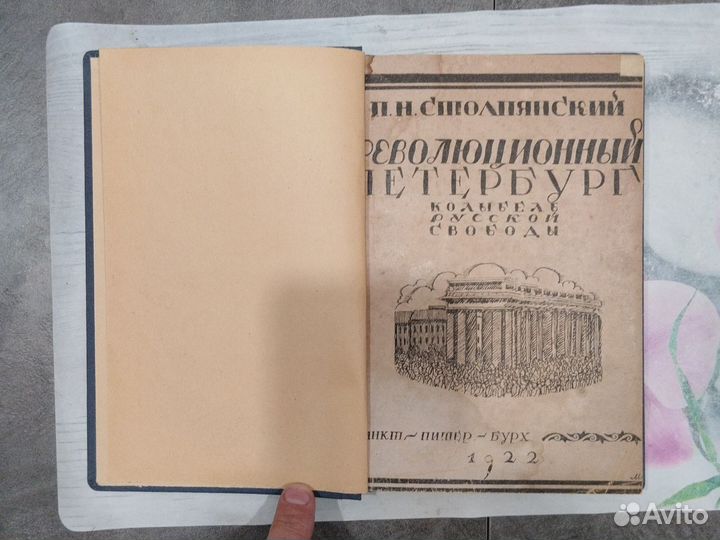 П.Н.СТОЛПЯНСКИЙ
РЕВОЛЮЦИОННЫЙ
ПЕТЕРБУРГ
КОЛЫБЕЛЬ
РУССКОЙ
СВОБОДЫ
АНКТ~ПИТЕР~БУРХ
1922
Avito